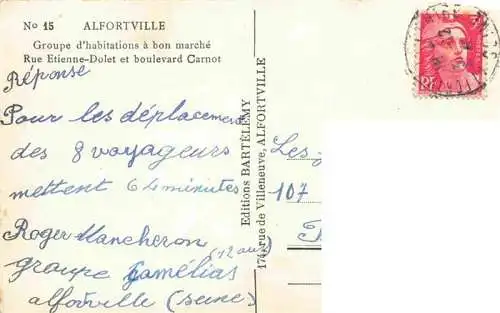 No 15 ALFORTVILLE
Groupe d'habitations à bon marché
Rue Etienne-Dolet et boulevard Carnot
Réponse
Pour les déplacements
des 8 voyageurs
mettent 64 minutes
Roger Mancheron
(12 ans)
groupe Camélias
alfortville (seine)
Editions BARTÉLEMY
174, rue de Villeneuve, ALFORTVILLE
Les
107
RF